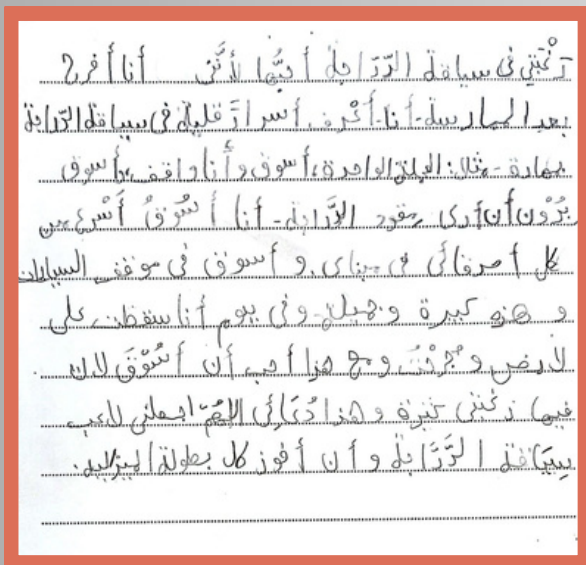 رَغْبَتِي فى سياقة الدَّرَّاجة أُحِبُّها لأَنَّنى أنا أفرح
بعد المدرسة - أنا أَعْرِف أسرارً قليلة فى سياقة الدَّراجة
بمهارة - مثال: الواحدة، أسوق وأنا واقف، أسوق
بدُوْن أن أرى مِقود الدَّرَّاجة - أنا أَسُوْقُ أَسْرع من
كل أصدقائى فى و أسوق فى موقف السيارات
و هذه كبيرة و جميلة وفى يوم أنا سقطت على
لارض و جُرِحْتُ و مع هذا أحب أن أَسُوْقَ لان
فيها رغبتى كبيرة و هذا دُعَائِى اللهُمَّ اجعلنى لاعب
بِسِيَاقة الدَّرَّاجة و أن أفوز كل بطولة